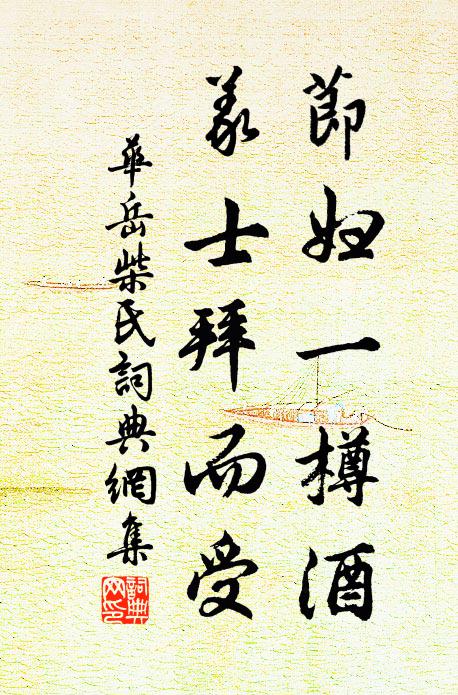 節婦一樽酒
義士拜而受
華岳柴氏詞典網集
詞典网印